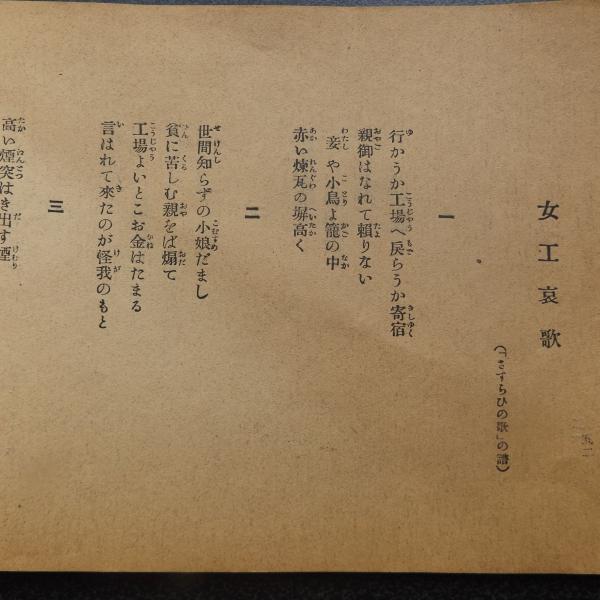 女工哀歌
(「さすらひの歌」の譜)
一
行かうか工場へ戻らうか寄宿
親御はなれて頼りない
妾や小鳥よ籠の中
赤い煉瓦の塀高く
二
世間知らずの小娘だまし
貧に苦しむ親をば煽て
工場よいとこお金はたまる
言はれて來たのが怪我のもと
三
高い煙突はき出す煙